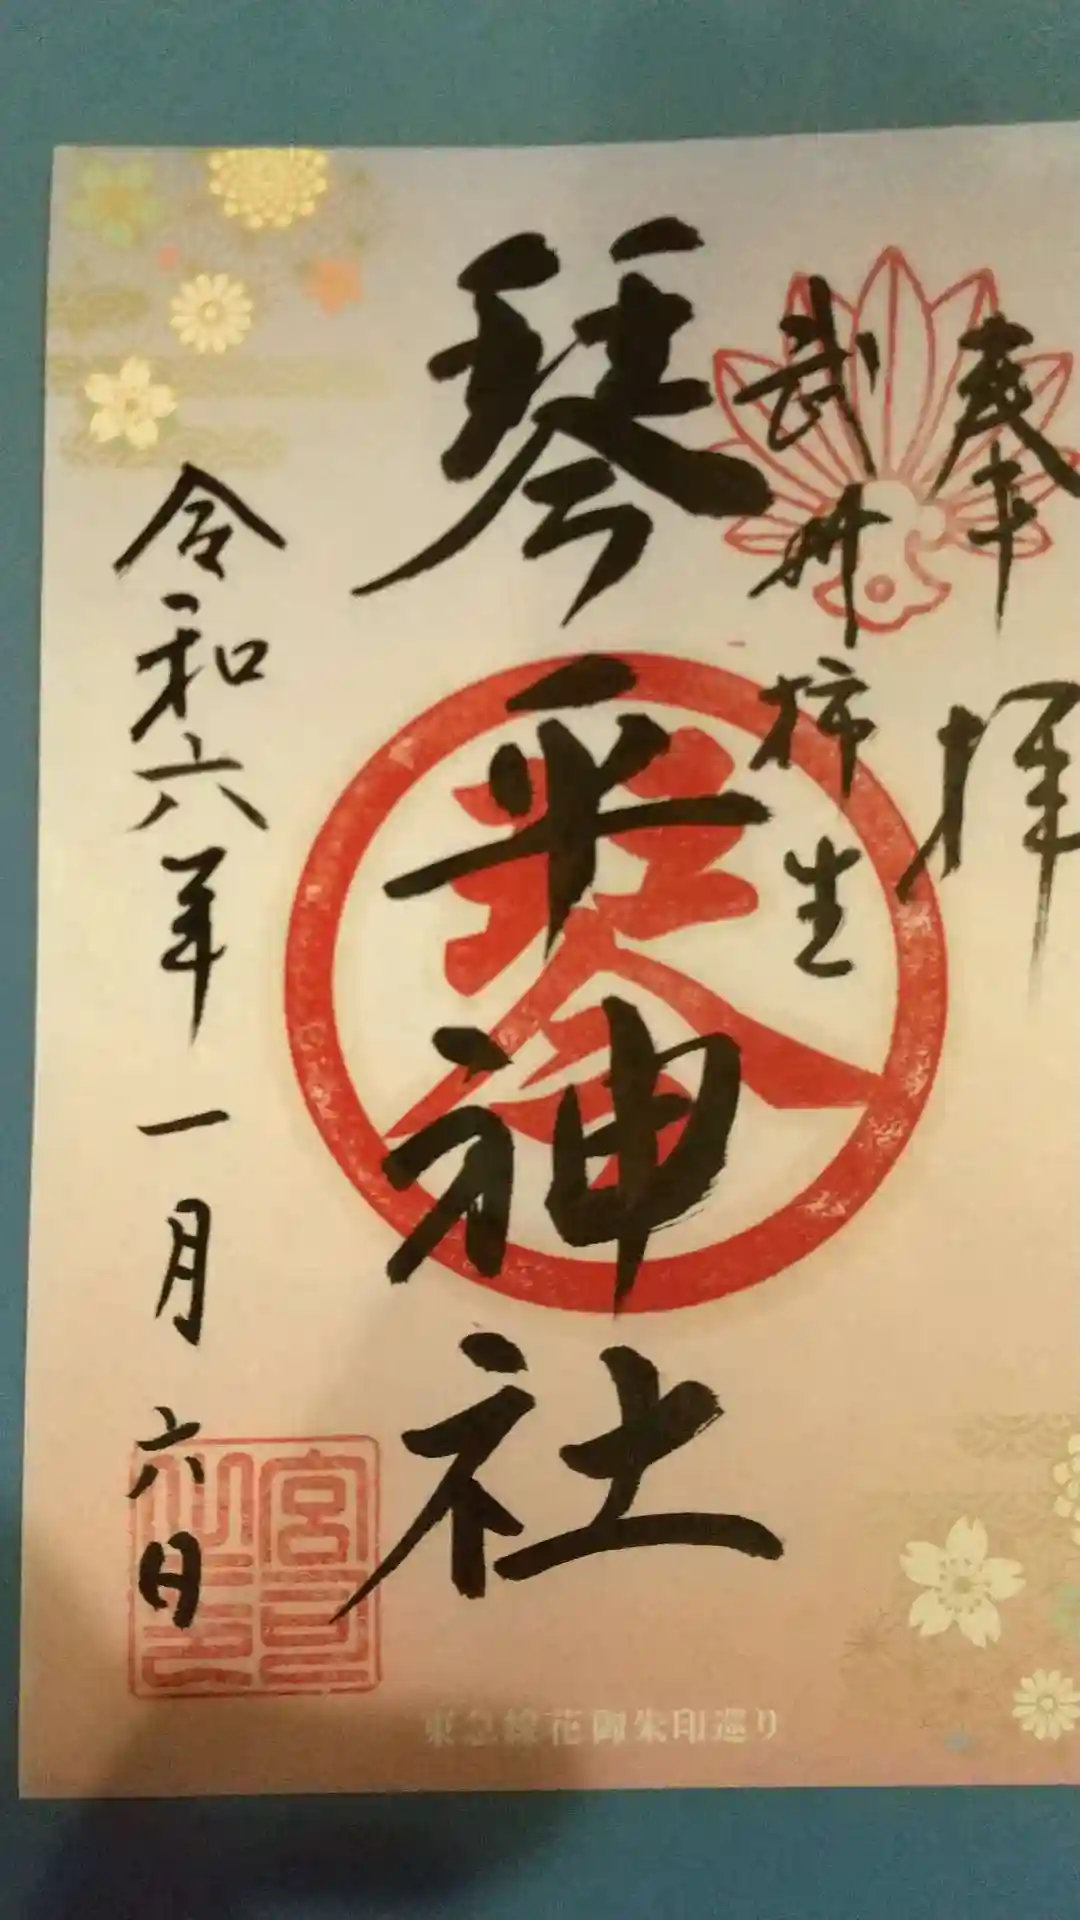 奉拝
武州柿生
琴平神社
琴
令和六年一月六日
宮司之印
東急線花御朱印巡り